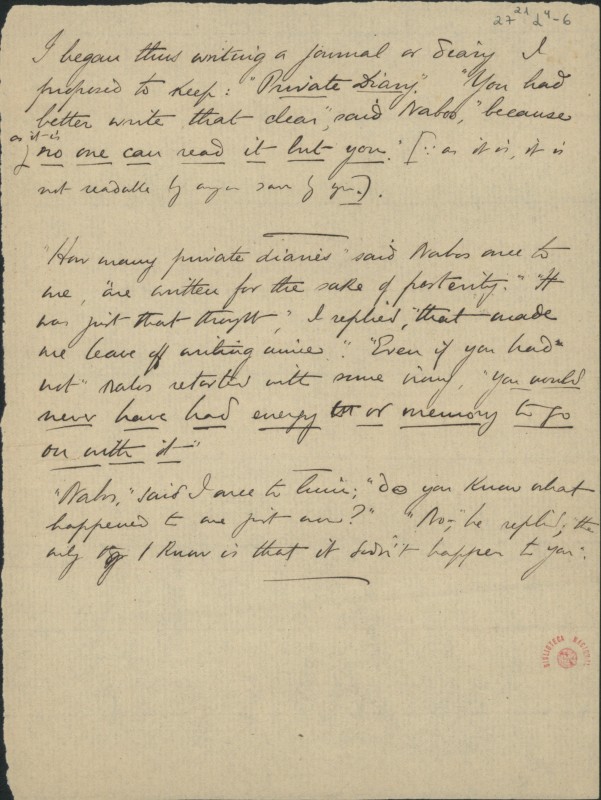 27 21 2 4-6
I began thus writing a journal or diary I
proposed to keep: "Private Diary". "You had
better write that clear", said Nabos, "because
as it is
no one can read it but you." [∵ as it is, it is
not readable by anyone save by you.].
"How many private diaries" said Nabos once to
me, "are written for the sake of posterity." "It
was just that thought," I replied, "that made
me leave off writing mine." "Even if you had
not" Nabos retorted with some irony, "you would
never have had energy or memory to go
on with it"
"Nabos," said I once to him; "do you know what
happened to me just now?" "No," he replied; "the
only thing I know is that it didn't happen to you".
BIBLIOTECA NACIONAL